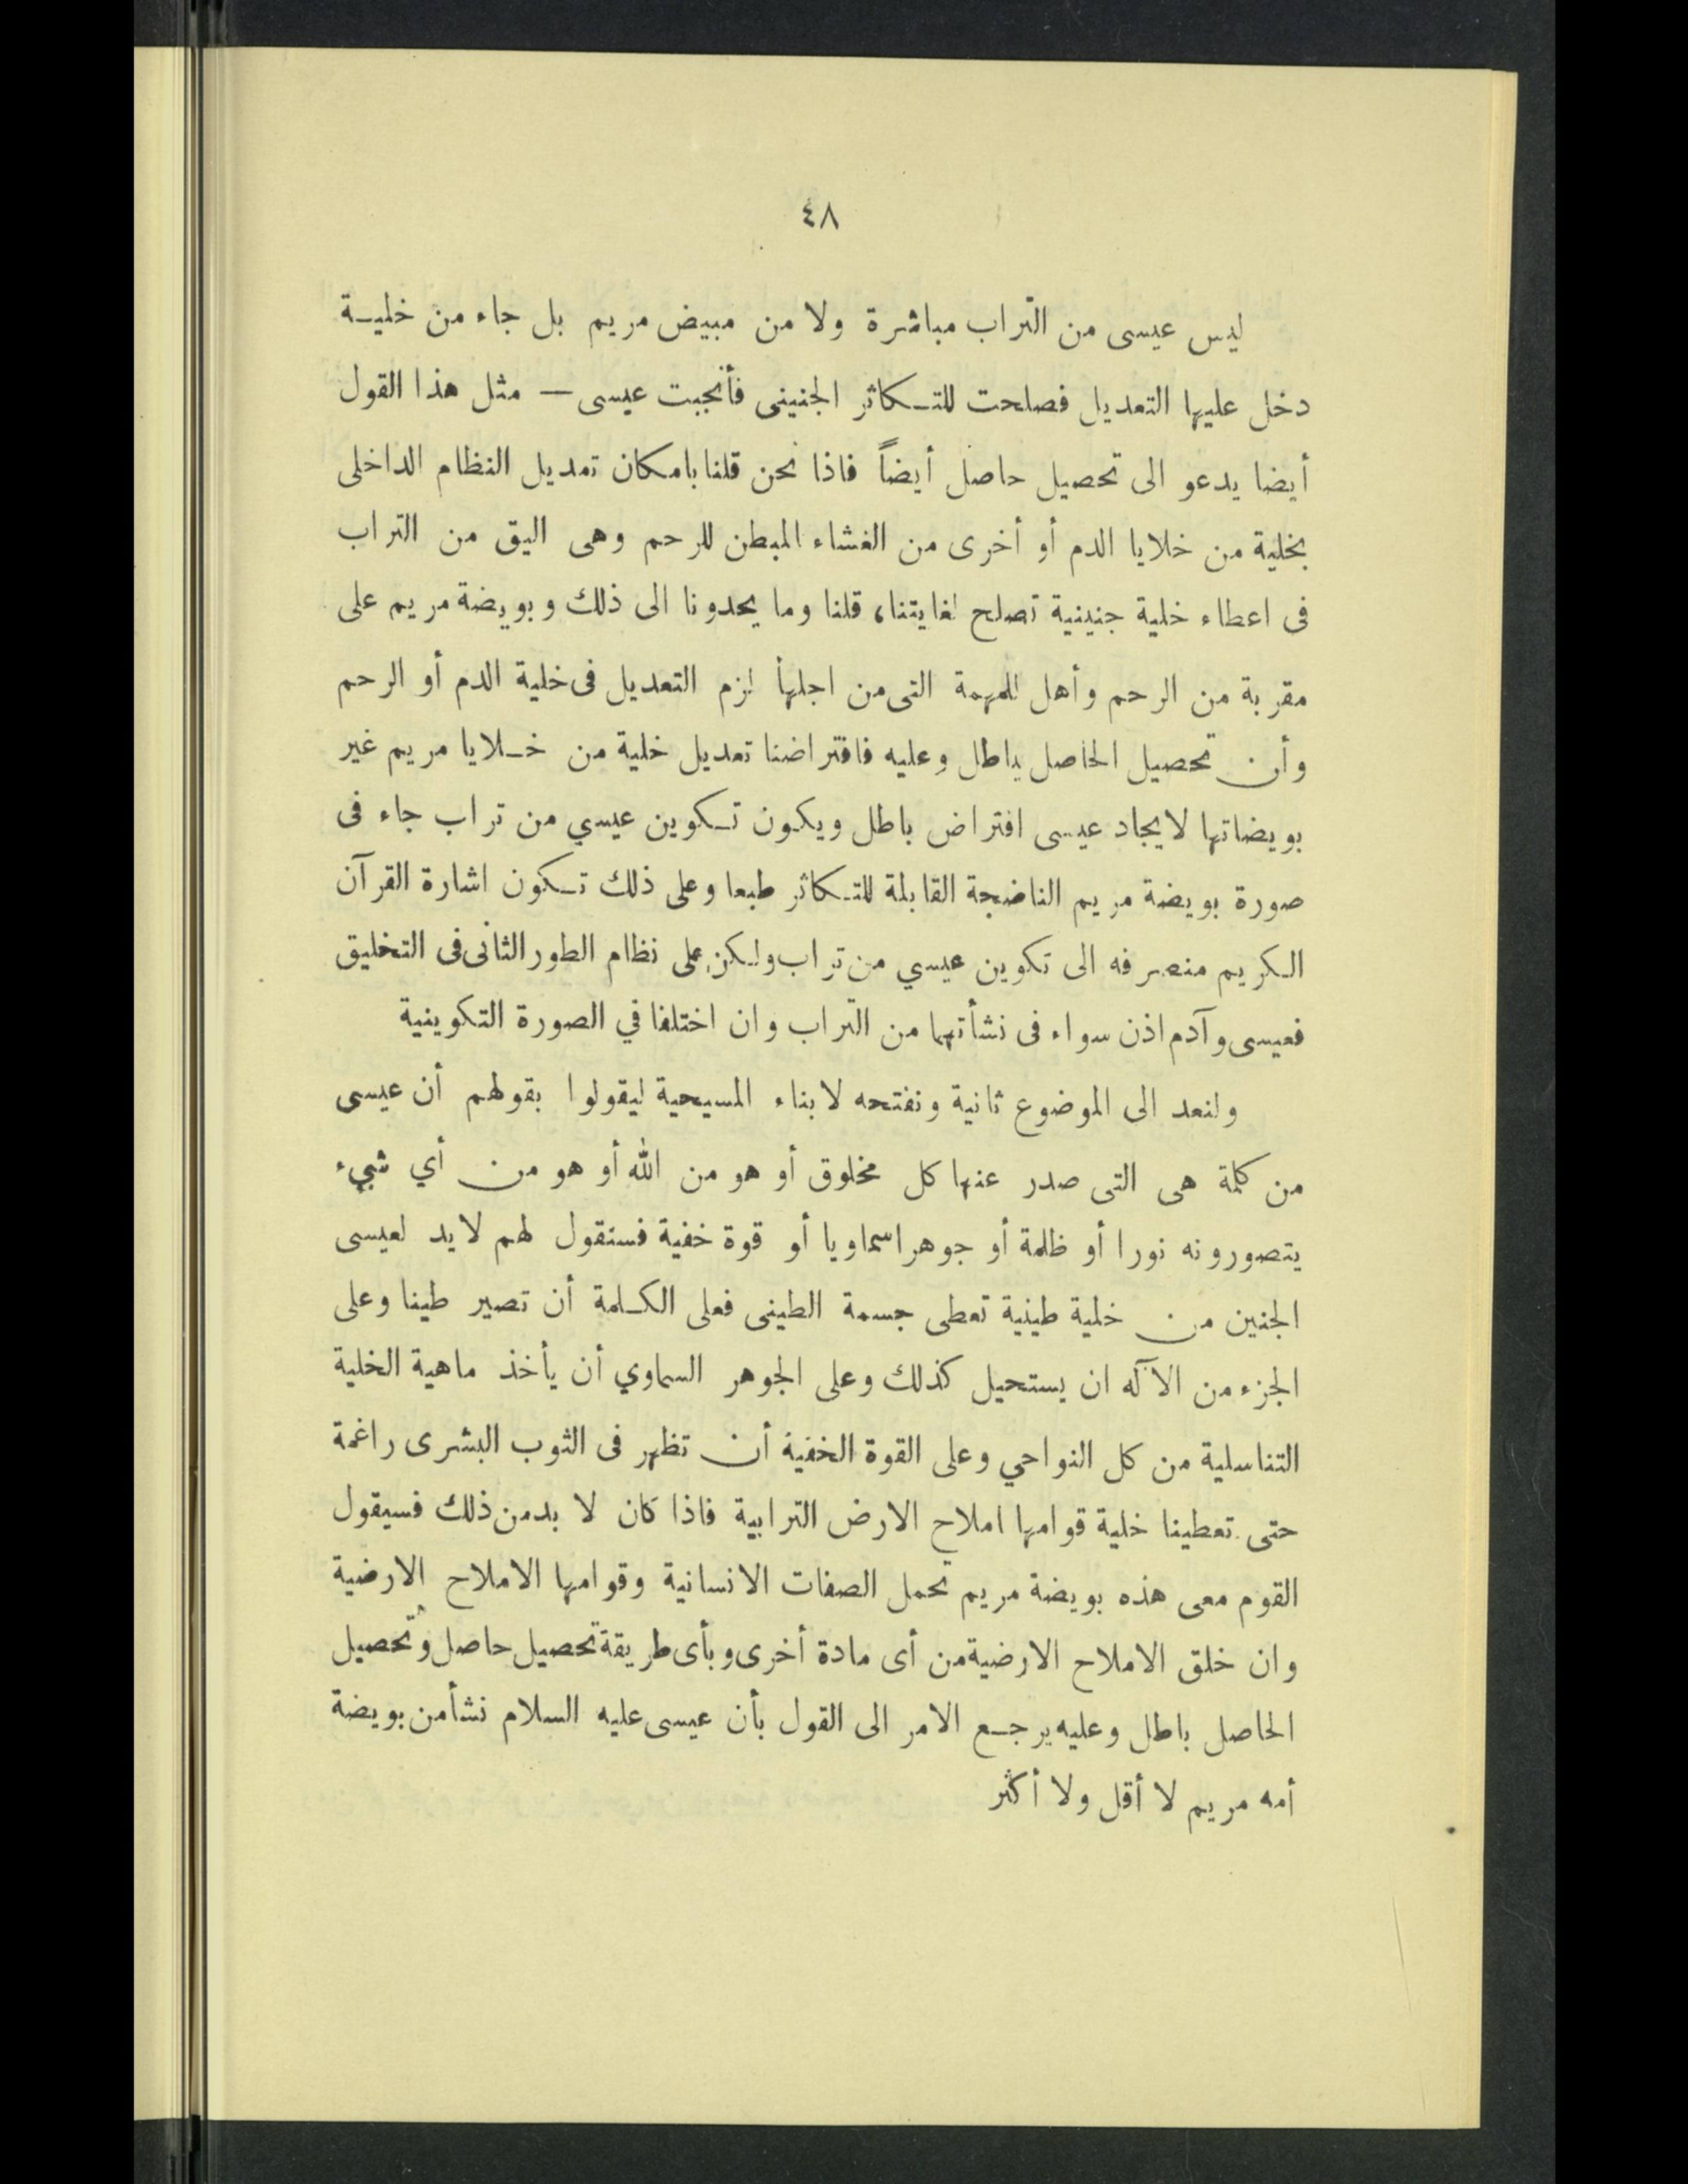 ٤٨
ليس عيسى من التراب مباشرة ولا من مبيض مريم بل جاء من خليـة
دخل عليها التعديل فصلحت للتـكاثر الجنينى فأنجبت عيسى — مثل هذا القول
أيضا يدعو الى تحصيل حاصل أيضاً فاذا نحن قلنا بامكان تعديل النظام الداخلى
بخلية من خلايا الدم أو أخرى من الغشاء المبطن للرحم وهى اليق من التراب
فى اعطاء خلية جنينية تصلح لغايتنا، قلنا وما يحدونا الى ذلك وبويضة مريم على
مقربة من الرحم وأهل للمهمة التى من اجلها لزم التعديل فى خلية الدم أو الرحم
وأن تحصيل الحاصل باطل وعليه فافتراضنا تعديل خلية من خـلايا مريم غير
بويضاتها لايجاد عيسى افتراض باطل ويكون تـكوين عيسي من تراب جاء فى
صورة بويضة مريم الناضجة القابلة للتـكاثر طبعا وعلى ذلك تـكون اشارة القرآن
الـكريم منصرفه الى تكوين عيسي من تراب ولـكن على نظام الطور الثانى فى التخليق
فعيسى وآدم اذن سواء فى نشأتهما من التراب وان اختلفا في الصورة التكوينية
ولنعد الى الموضوع ثانية ونفتحه لابناء المسيحية ليقولوا بقولهم أن عيسى
من كلمة هى التى صدر عنها كل مخلوق أو هو من الله أو هو من أي شيء
يتصورونه نورا أو ظلمة أو جوهرا سماويا أو قوة خفية فسنقول لهم لابد لعيسى
الجنين من خلية طينية تعطى جسمة الطينى فعلى الكـلمة أن تصير طينا وعلى
الجزء من الآله ان يستحيل كذلك وعلى الجوهر السماوي أن يأخذ ماهية الخلية
التناسلية من كل النواحي وعلى القوة الخفية أن تظهر فى الثوب البشرى راغمة
حتى تعطينا خلية قوامها املاح الارض الترابية فاذا كان لا بد من ذلك فسيقول
القوم معى هذه بويضة مريم تحمل الصفات الانسانية وقوامها الاملاح الارضية
وان خلق الاملاح الارضية من أى مادة أخرى وبأى طريقة تحصيل حاصل وتحصيل
الحاصل باطل وعليه يرجـع الامر الى القول بأن عيسى عليه السلام نشأ من بويضة
أمه مريم لا أقل ولا أكثر